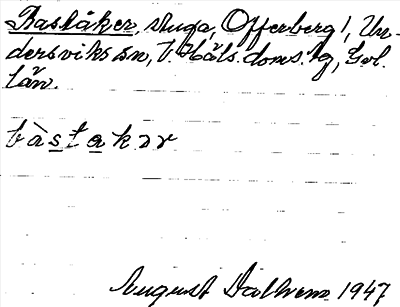 Baståker, stuga, Offerberg!, Un-
dersviks sn, V. Häls. doms. lg, Gvl.
län.
bàstakər
August Dalhem 1947